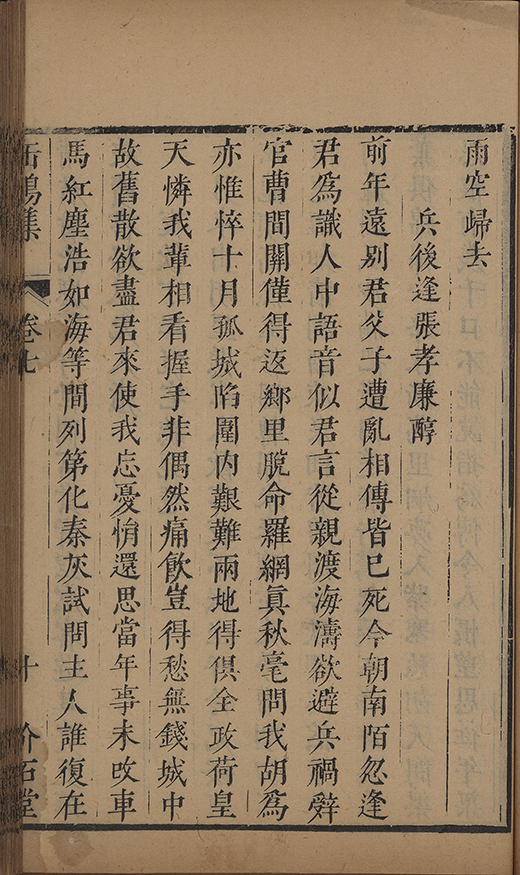 雨空歸去
兵後逢張孝廉醇
前年遠別君父子遭亂相傳皆已死今朝南陌忽逢
君為識人中語音似君言從親渡海濤欲避兵禍辭
官曹間關僅得返鄉里脫命羅網眞秋毫問我胡為
亦惟悴十月孤城陷圍内艱難兩地得俱全政荷皇
天憐我輩相看握手非偶然痛飲豈得愁無錢城中
故舊散欲盡君來使我忘憂悁還思當年事未攺車
馬紅塵浩如海等間列第化秦灰試問主人誰復在
缶鳴集 卷七 十 介石堂